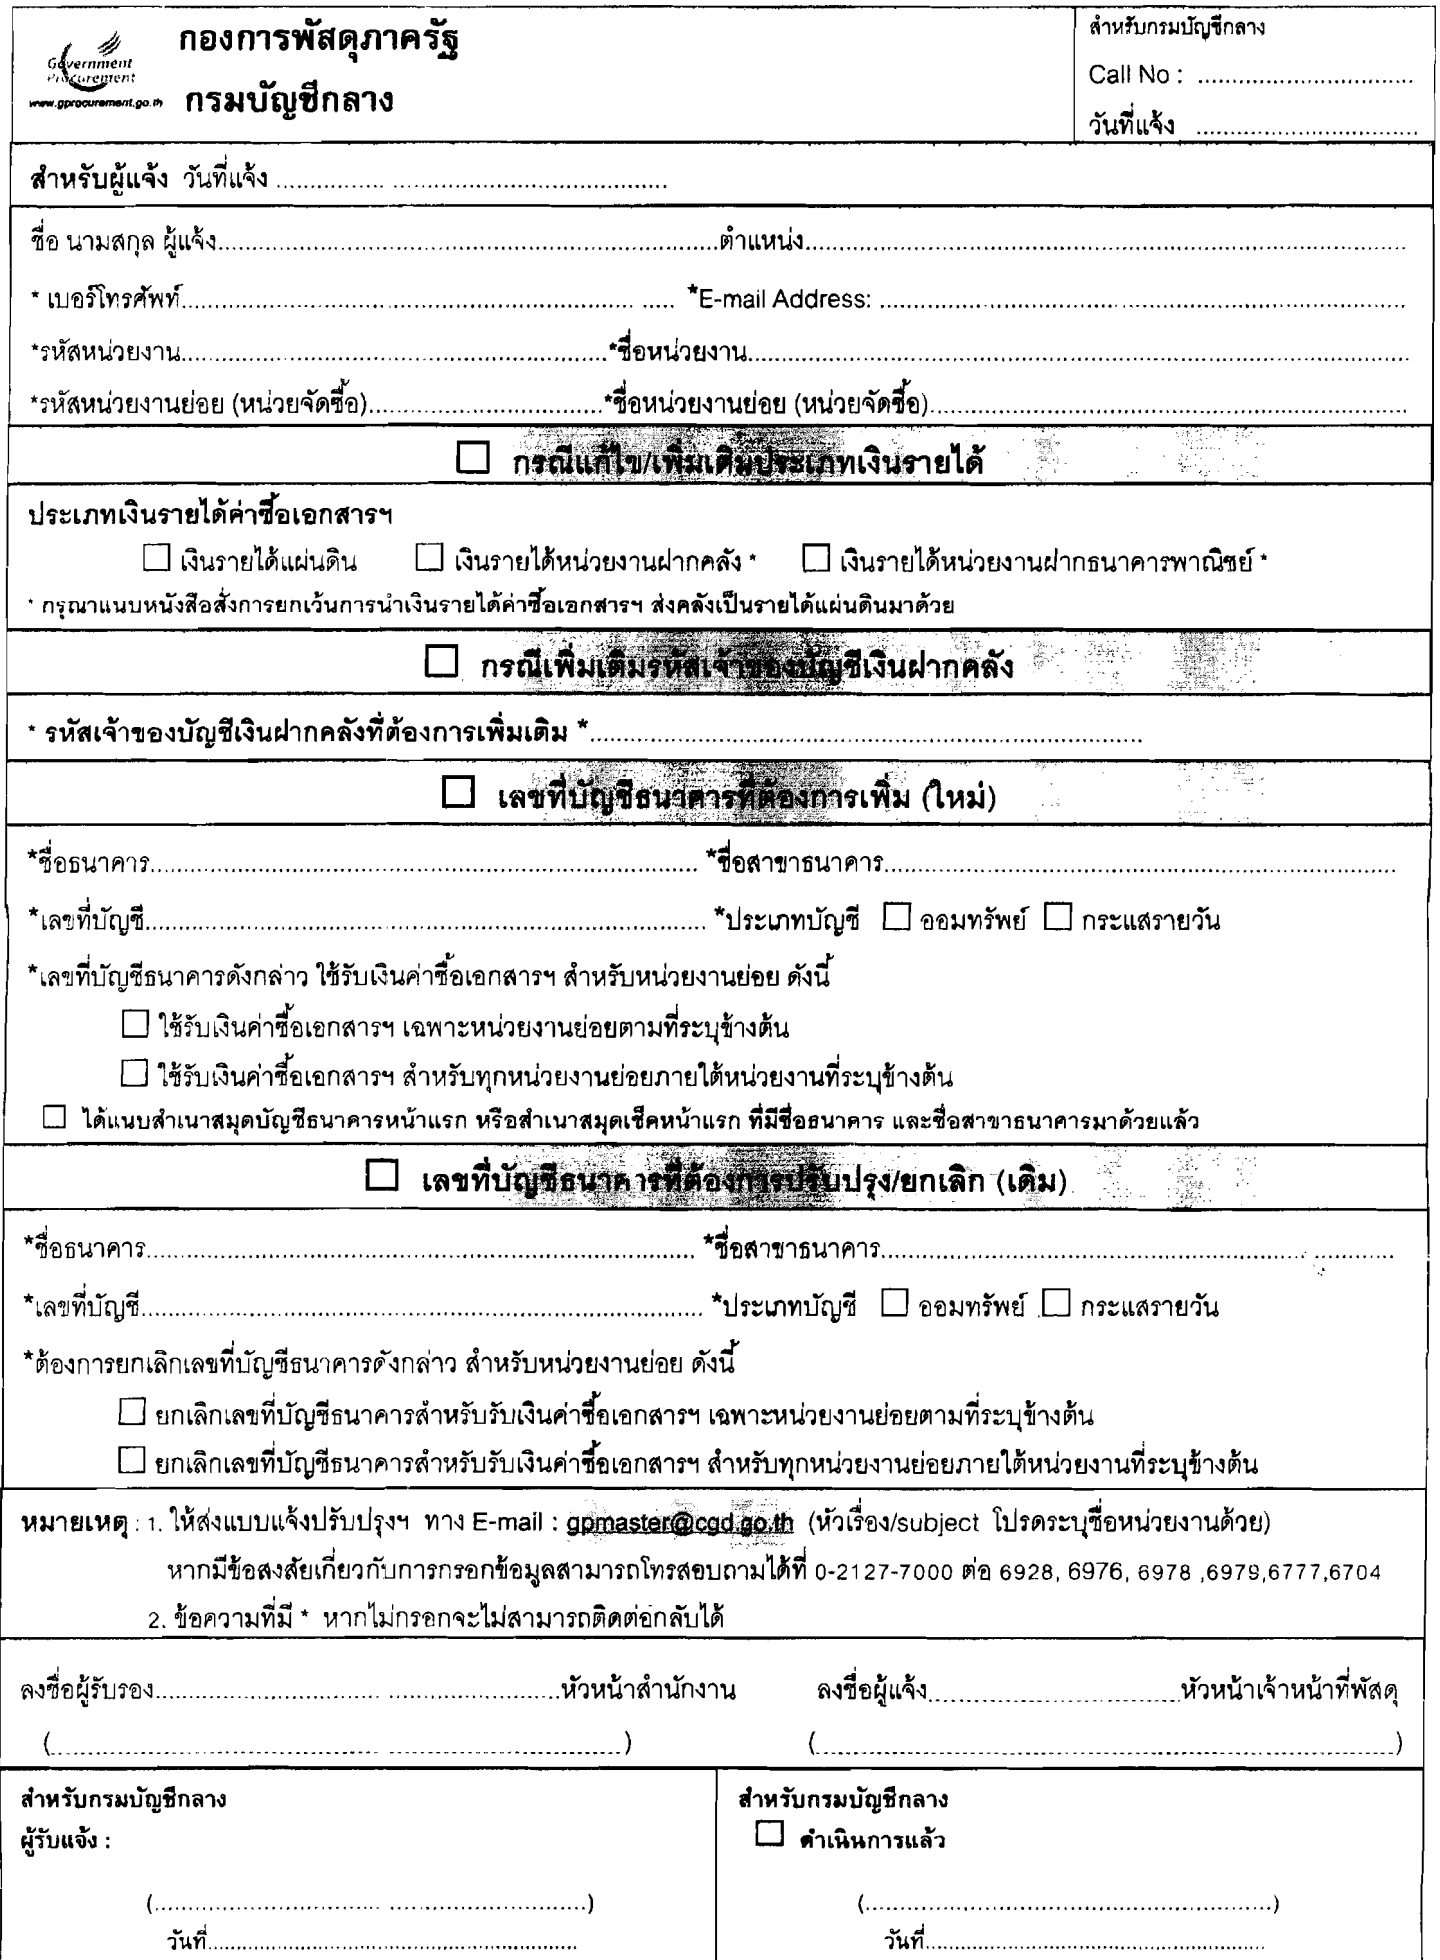 Government
Procurement
www.gprocurement.go.th
กองการพัสดุภาครัฐ
กรมบัญชีกลาง
สำหรับกรมบัญชีกลาง
Call No : ................................
วันที่แจ้ง ................................
สำหรับผู้แจ้ง วันที่แจ้ง ................ ..........................................
ชื่อ นามสกุล ผู้แจ้ง..........................................................ตำแหน่ง..........................................................
* เบอร์โทรศัพท์.......................................................... ..... *E-mail Address: ..........................................................
*รหัสหน่วยงาน..........................................................*ชื่อหน่วยงาน..........................................................
*รหัสหน่วยงานย่อย (หน่วยจัดซื้อ)................................*ชื่อหน่วยงานย่อย (หน่วยจัดซื้อ)..........................................................
☐ กรณีแก้ไข/เพิ่มเติมประเภทเงินรายได้
ประเภทเงินรายได้ค่าซื้อเอกสารฯ
☐ เงินรายได้แผ่นดิน ☐ เงินรายได้หน่วยงานฝากคลัง * ☐ เงินรายได้หน่วยงานฝากธนาคารพาณิชย์ *
* กรุณาแนบหนังสือสั่งการยกเว้นการนำเงินรายได้ค่าซื้อเอกสารฯ ส่งคลังเป็นรายได้แผ่นดินมาด้วย
☐ กรณีเพิ่มเติมรหัสเจ้าของบัญชีเงินฝากคลัง
* รหัสเจ้าของบัญชีเงินฝากคลังที่ต้องการเพิ่มเติม *..........................................................
☐ เลขที่บัญชีธนาคารที่ต้องการเพิ่ม (ใหม่)
*ชื่อธนาคาร.......................................................... *ชื่อสาขาธนาคาร..........................................................
*เลขที่บัญชี.......................................................... *ประเภทบัญชี ☐ ออมทรัพย์ ☐ กระแสรายวัน
*เลขที่บัญชีธนาคารดังกล่าว ใช้รับเงินค่าซื้อเอกสารฯ สำหรับหน่วยงานย่อย ดังนี้
☐ ใช้รับเงินค่าซื้อเอกสารฯ เฉพาะหน่วยงานย่อยตามที่ระบุข้างต้น
☐ ใช้รับเงินค่าซื้อเอกสารฯ สำหรับทุกหน่วยงานย่อยภายใต้หน่วยงานที่ระบุข้างต้น
☐ ได้แนบสำเนาสมุดบัญชีธนาคารหน้าแรก หรือสำเนาสมุดเช็คหน้าแรก ที่มีชื่อธนาคาร และชื่อสาขาธนาคารมาด้วยแล้ว
☐ เลขที่บัญชีธนาคารที่ต้องการปรับปรุง/ยกเลิก (เดิม)
*ชื่อธนาคาร.......................................................... *ชื่อสาขาธนาคาร..........................................................
*เลขที่บัญชี.......................................................... *ประเภทบัญชี ☐ ออมทรัพย์ ☐ กระแสรายวัน
*ต้องการยกเลิกเลขที่บัญชีธนาคารดังกล่าว สำหรับหน่วยงานย่อย ดังนี้
☐ ยกเลิกเลขที่บัญชีธนาคารสำหรับรับเงินค่าซื้อเอกสารฯ เฉพาะหน่วยงานย่อยตามที่ระบุข้างต้น
☐ ยกเลิกเลขที่บัญชีธนาคารสำหรับรับเงินค่าซื้อเอกสารฯ สำหรับทุกหน่วยงานย่อยภายใต้หน่วยงานที่ระบุข้างต้น
หมายเหตุ : 1. ให้ส่งแบบแจ้งปรับปรุงฯ ทาง E-mail : gpmaster@cgd.go.th (หัวเรื่อง/subject โปรดระบุชื่อหน่วยงานด้วย)
หากมีข้อสงสัยเกี่ยวกับการกรอกข้อมูลสามารถโทรสอบถามได้ที่ 0-2127-7000 ต่อ 6928, 6976, 6978 ,6979,6777,6704
2. ข้อความที่มี * หากไม่กรอกจะไม่สามารถติดต่อกลับได้
ลงชื่อผู้รับรอง................................ ........................หัวหน้าสำนักงาน ลงชื่อผู้แจ้ง................................หัวหน้าเจ้าหน้าที่พัสดุ
(..........................................................) (..........................................................)
สำหรับกรมบัญชีกลาง
ผู้รับแจ้ง :
(................................ ............................)
วันที่..........................................................
สำหรับกรมบัญชีกลาง
☐ ดำเนินการแล้ว
(..........................................................)
วันที่..........................................................